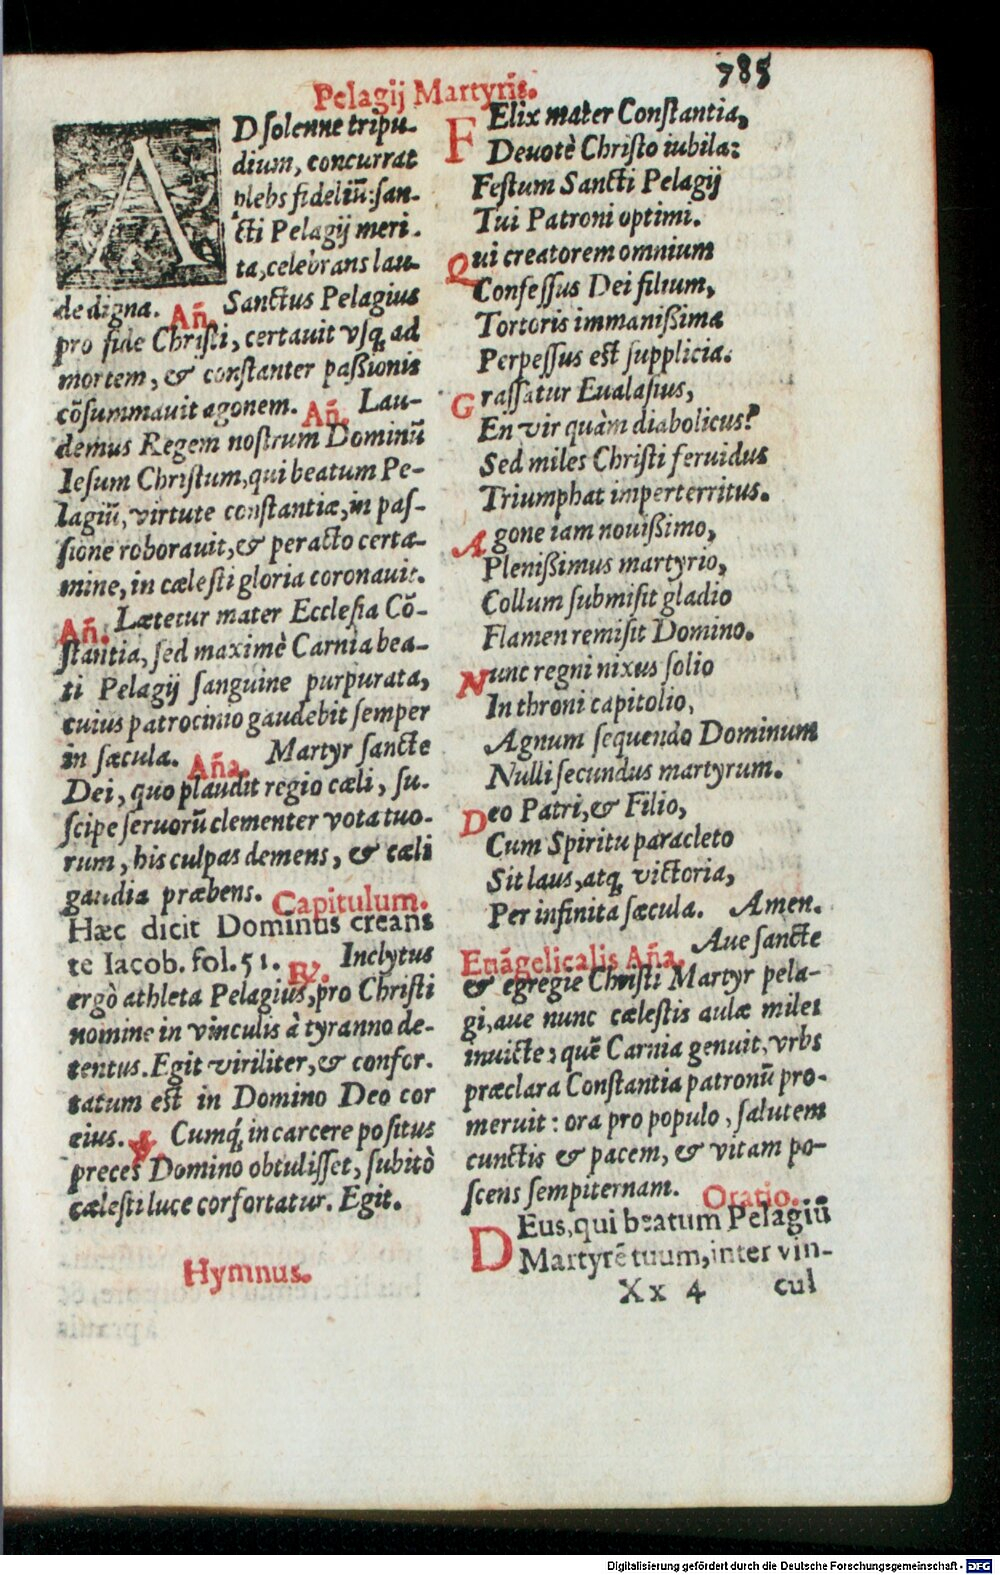 785
Pelagij Martyris.
AD solenne tripu-
dium, concurrat
plebs fideliū: san-
cti Pelagij meri-
ta, celebrans lau-
de digna. Añ. Sanctus Pelagius
pro fide Christi, certauit vsq; ad
mortem, & constanter paßionis
cōsummauit agonem. Añ. Lau-
demus Regem nostrum Dominū
Iesum Christum, qui beatum Pe-
lagiū, virtute constantiæ, in pas-
sione roborauit, & peracto certa-
mine, in cælesti gloria coronauit.
Añ. Lætetur mater Ecclesia Cō-
stantia, sed maximè Carnia bea-
ti Pelagij sanguine purpurata,
cuius patrocinio gaudebit semper
in sæcula. Aña. Martyr sancte
Dei, quo plaudit regio cæli, su-
scipe seruorū clementer vota tuo-
rum, his culpas demens, & cæli
gaudia præbens. Capitulum.
Hæc dicit Dominus creans
te Iacob. fol. 51. ℟. Inclytus
ergò athleta Pelagius, pro Christi
nomine in vinculis à tyranno de-
tentus. Egit viriliter, & confor-
tatum est in Domino Deo cor
eius. ℣. Cumq́; in carcere positus
preces Domino obtulisset, subitò
cælesti luce corfortatur. Egit.
Hymnus.
FElix mater Constantia,
Deuotè Christo iubila:
Festum Sancti Pelagij
Tui Patroni optimi.
Qui creatorem omnium
Confessus Dei filium,
Tortoris immanißima
Perpessus est supplicia.
Grassatur Eualasius,
En vir quàm diabolicus?
Sed miles Christi feruidus
Triumphat imperterritus.
Agone iam nouißimo,
Plenißimus martyrio,
Collum submisit gladio
Flamen remisit Domino.
Nunc regni nixus solio
In throni capitolio,
Agnum sequendo Dominum
Nulli secundus martyrum.
Deo Patri, & Filio,
Cum Spiritu paracleto
Sit laus, atq; victoria,
Per infinita sæcula. Amen.
Euāgelicalis Aña. Aue sancte
& egregie Christi Martyr pela-
gi, aue nunc cælestis aulæ miles
inuicte: quē Carnia genuit, vrbs
præclara Constantia patronū pro-
meruit: ora pro populo, salutem
cunctis & pacem, & vitam po-
scens sempiternam. Oratio.
DEus, qui beatum Pelagiū
Martyrē tuum, inter vin-
Xx 4 cul
Digitalisierung gefördert durch die Deutsche Forschungsgemeinschaft - DFG